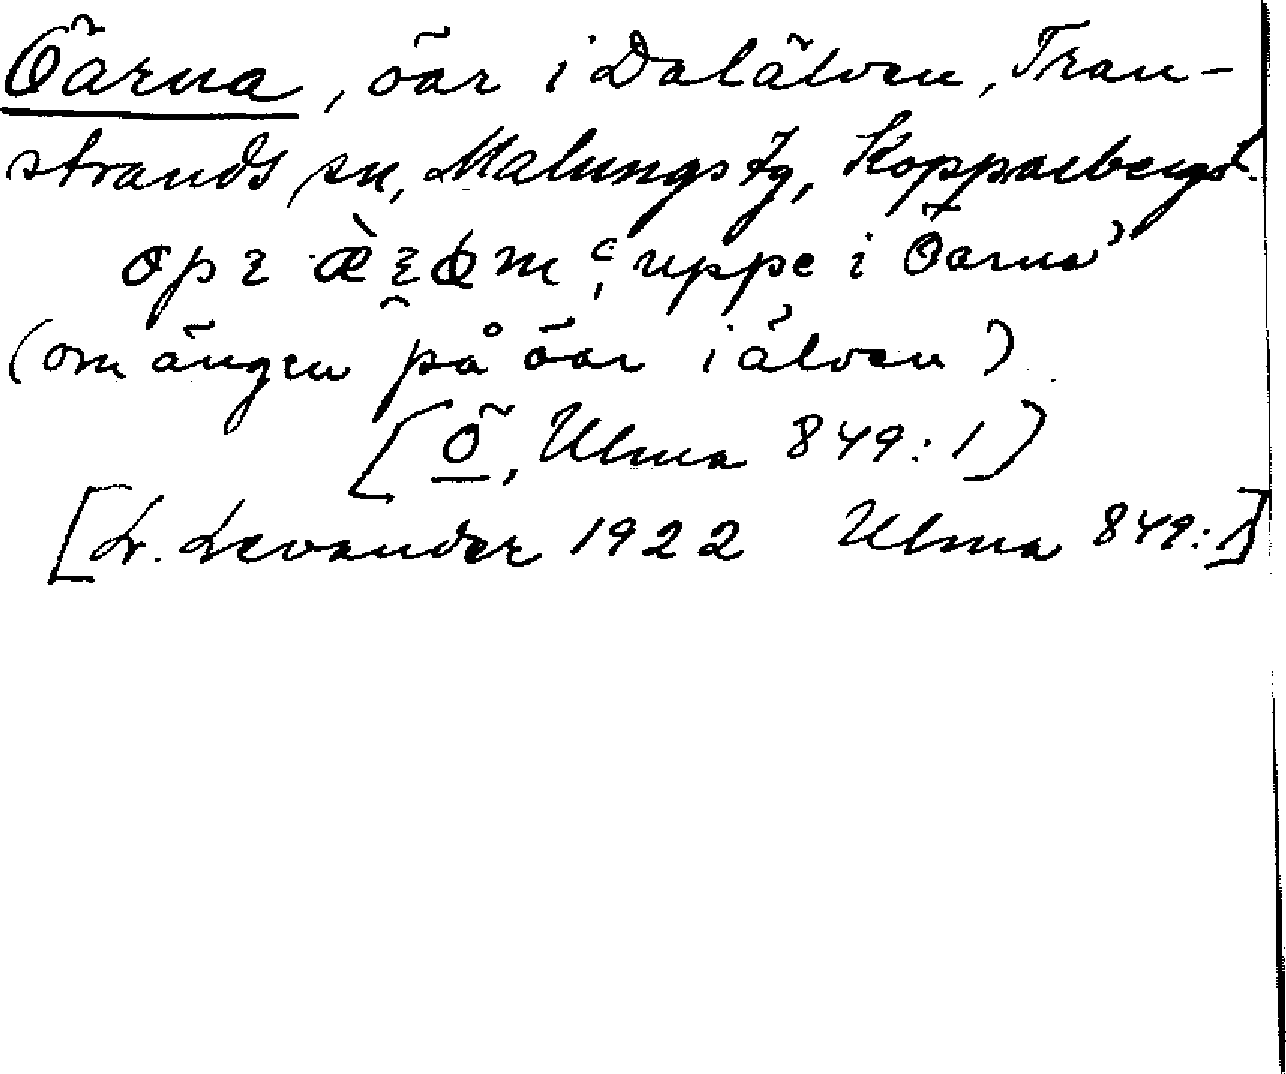 Öarna, öar i Dalälven, Tran-
strands sn, Malungs tg, Kopparbergs l.
'uppe i Öarna'
(om ängen på öar i älven)
[Ö, Ulma 849:1]
[L. Levander 1922 Ulma 849:1]